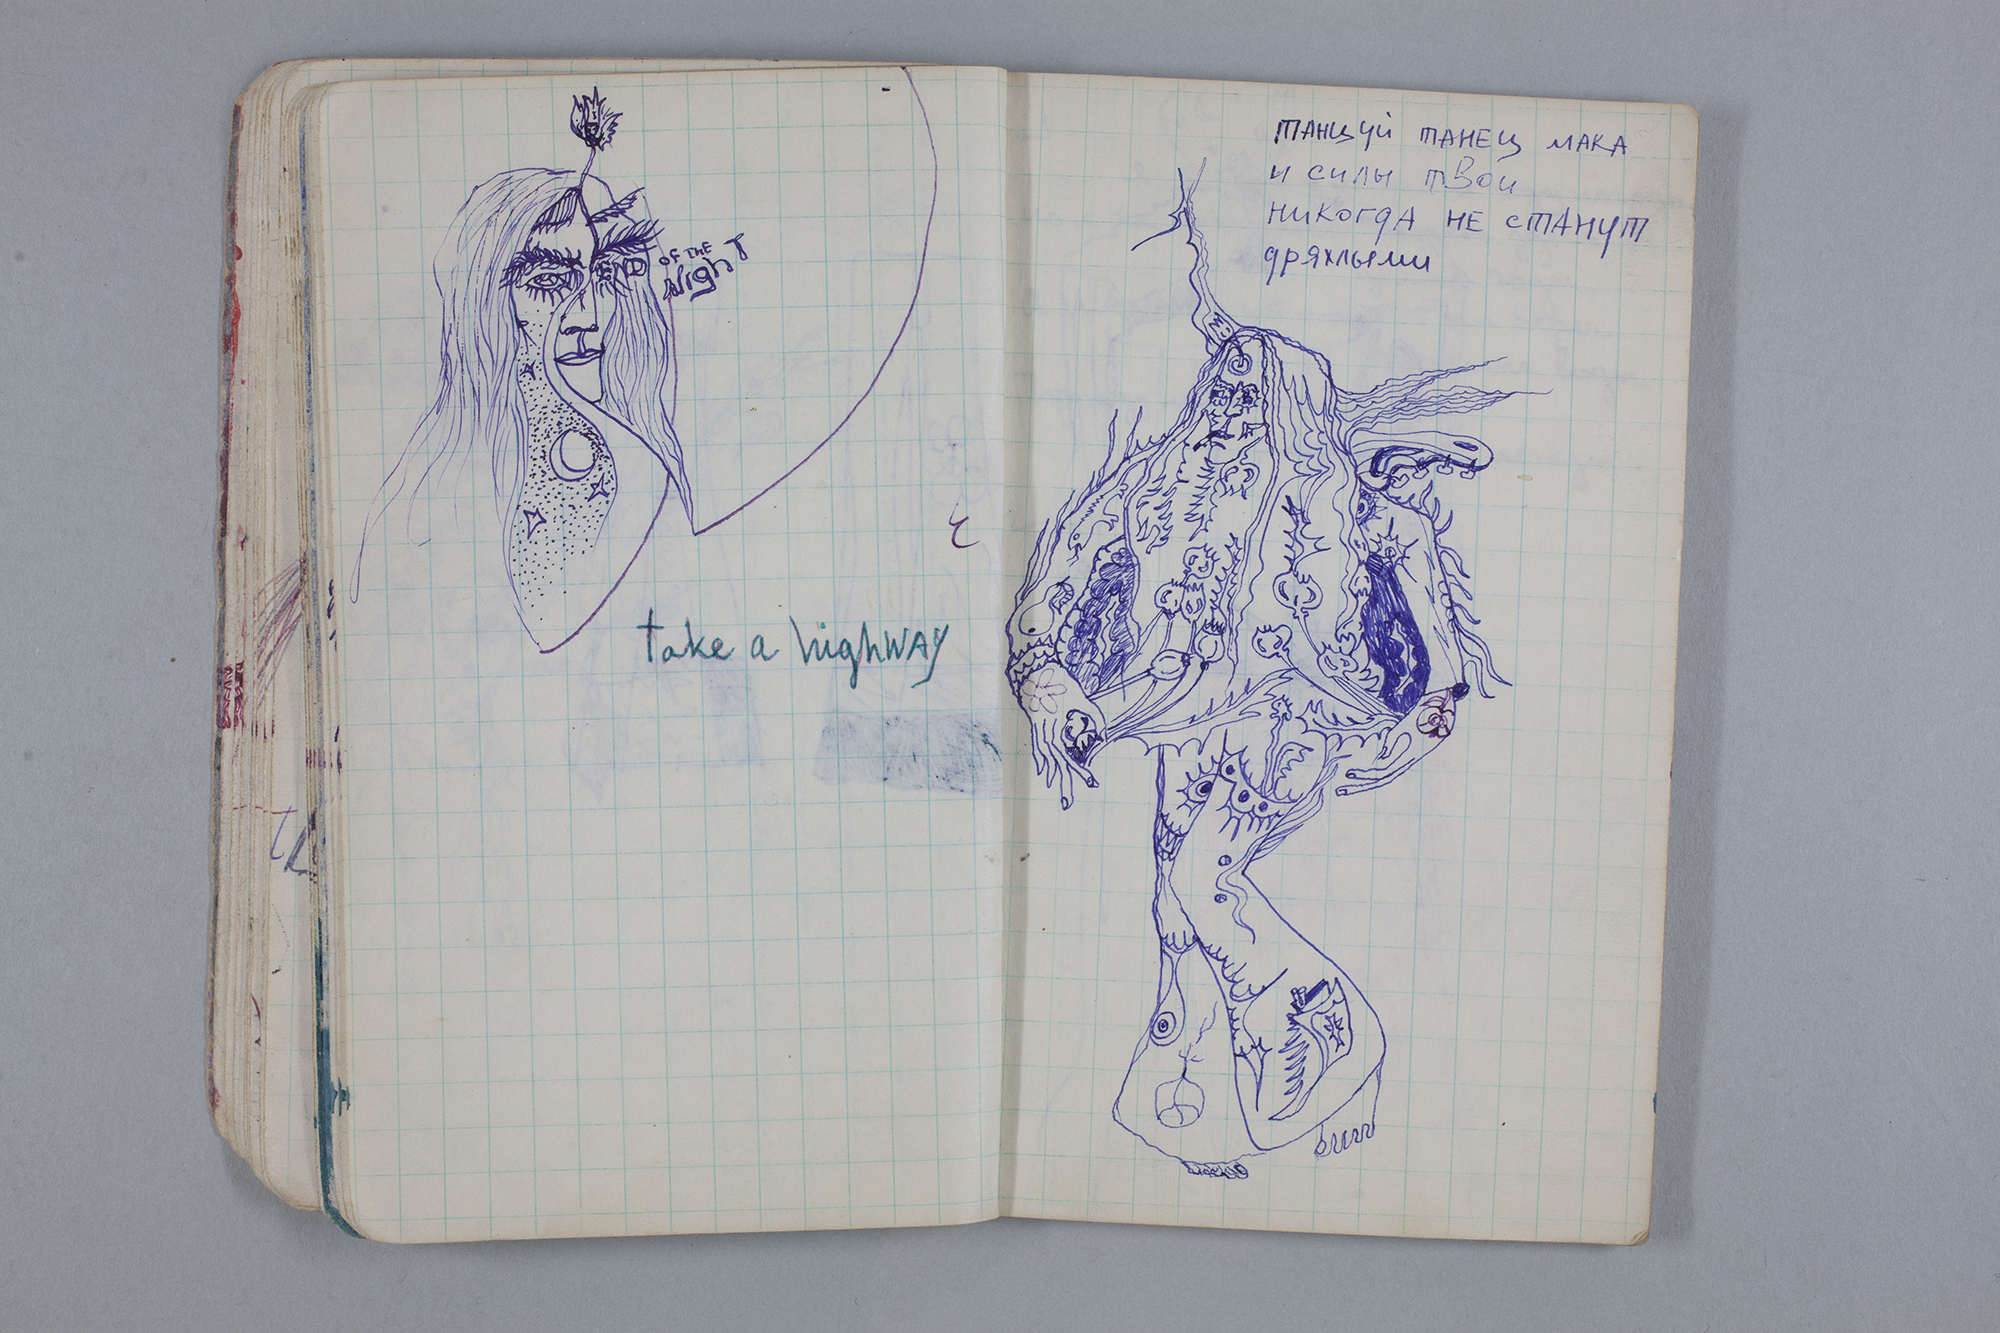 END OF THE
Night
take a highway
танцуй танец мака
и силы твои
никогда не станут
дряхлыми